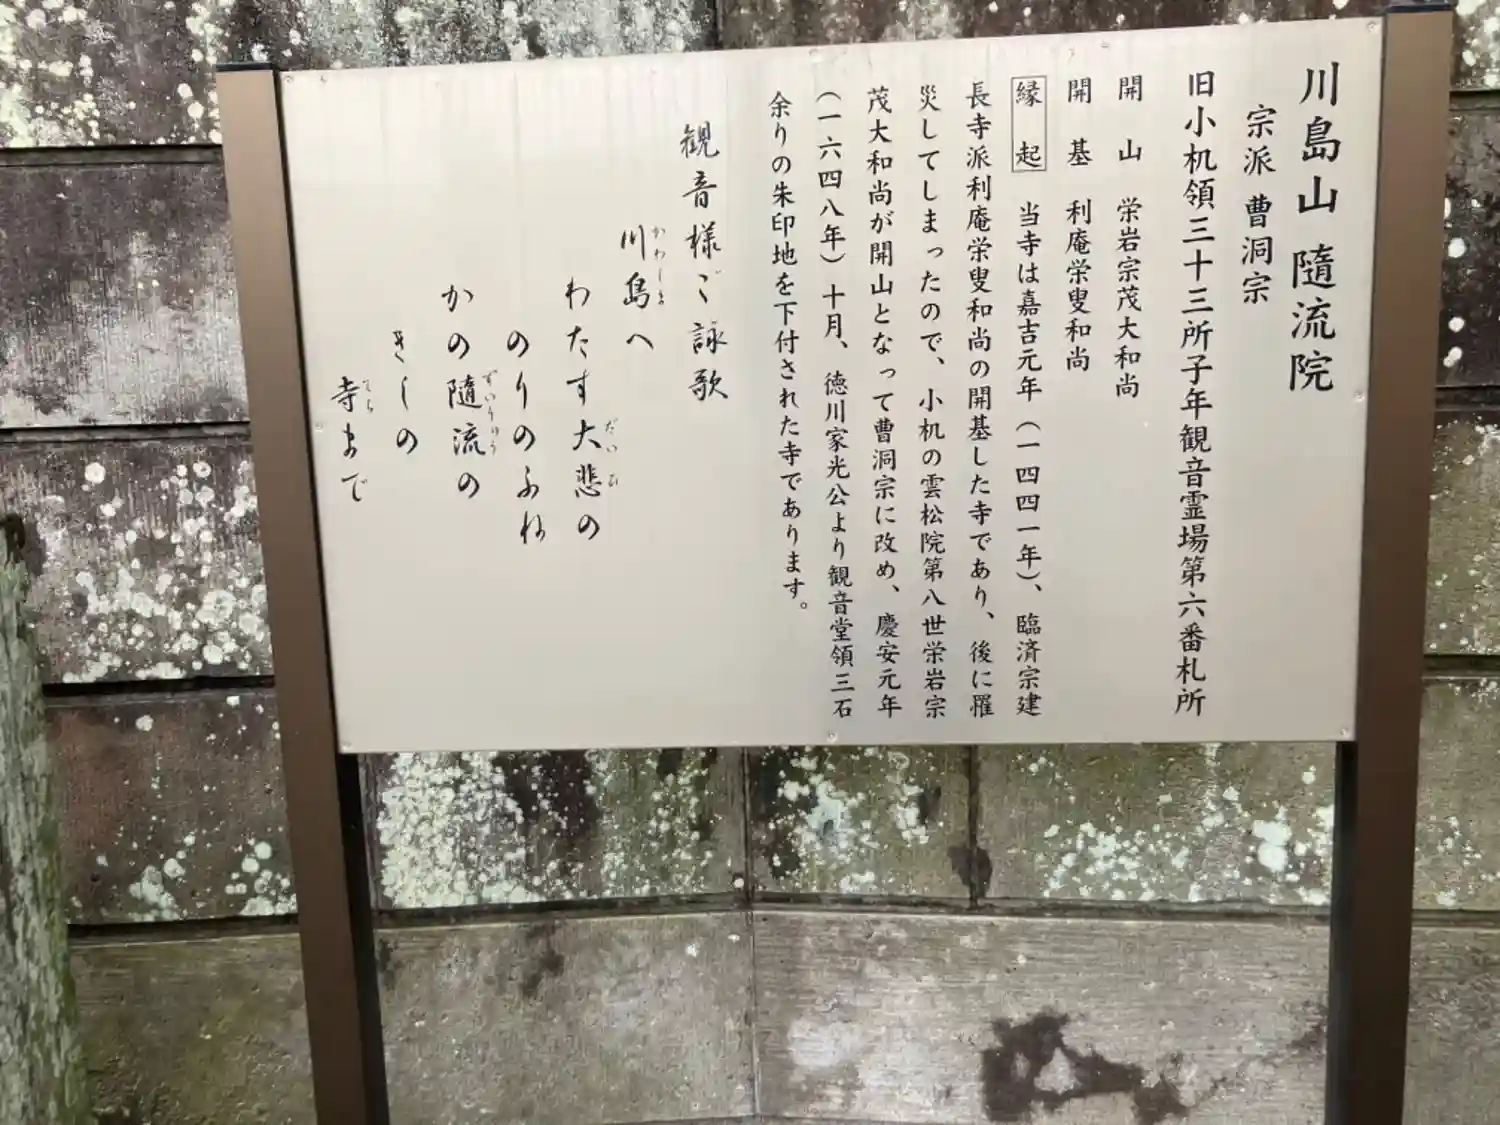 川島山 隨流院
宗派 曹洞宗
旧小机領三十三所子年観音霊場第六番札所
開山 栄岩宗茂大和尚
開基 利庵栄叟和尚
縁起 当寺は嘉吉元年(一四四一年)、臨済宗建
長寺派利庵栄叟和尚の開基した寺であり、後に罹
災してしまったので、小机の雲松院第八世栄岩宗
茂大和尚が開山となって曹洞宗に改め、慶安元年
(一六四八年)十月、徳川家光公より観音堂領三石
余りの朱印地を下付された寺であります。
観音様ご詠歌
川島へ
かわしま
わたす大悲の
だいひ
のりのふね
かの隨流の
ずいりう
きしの
寺まで
てら